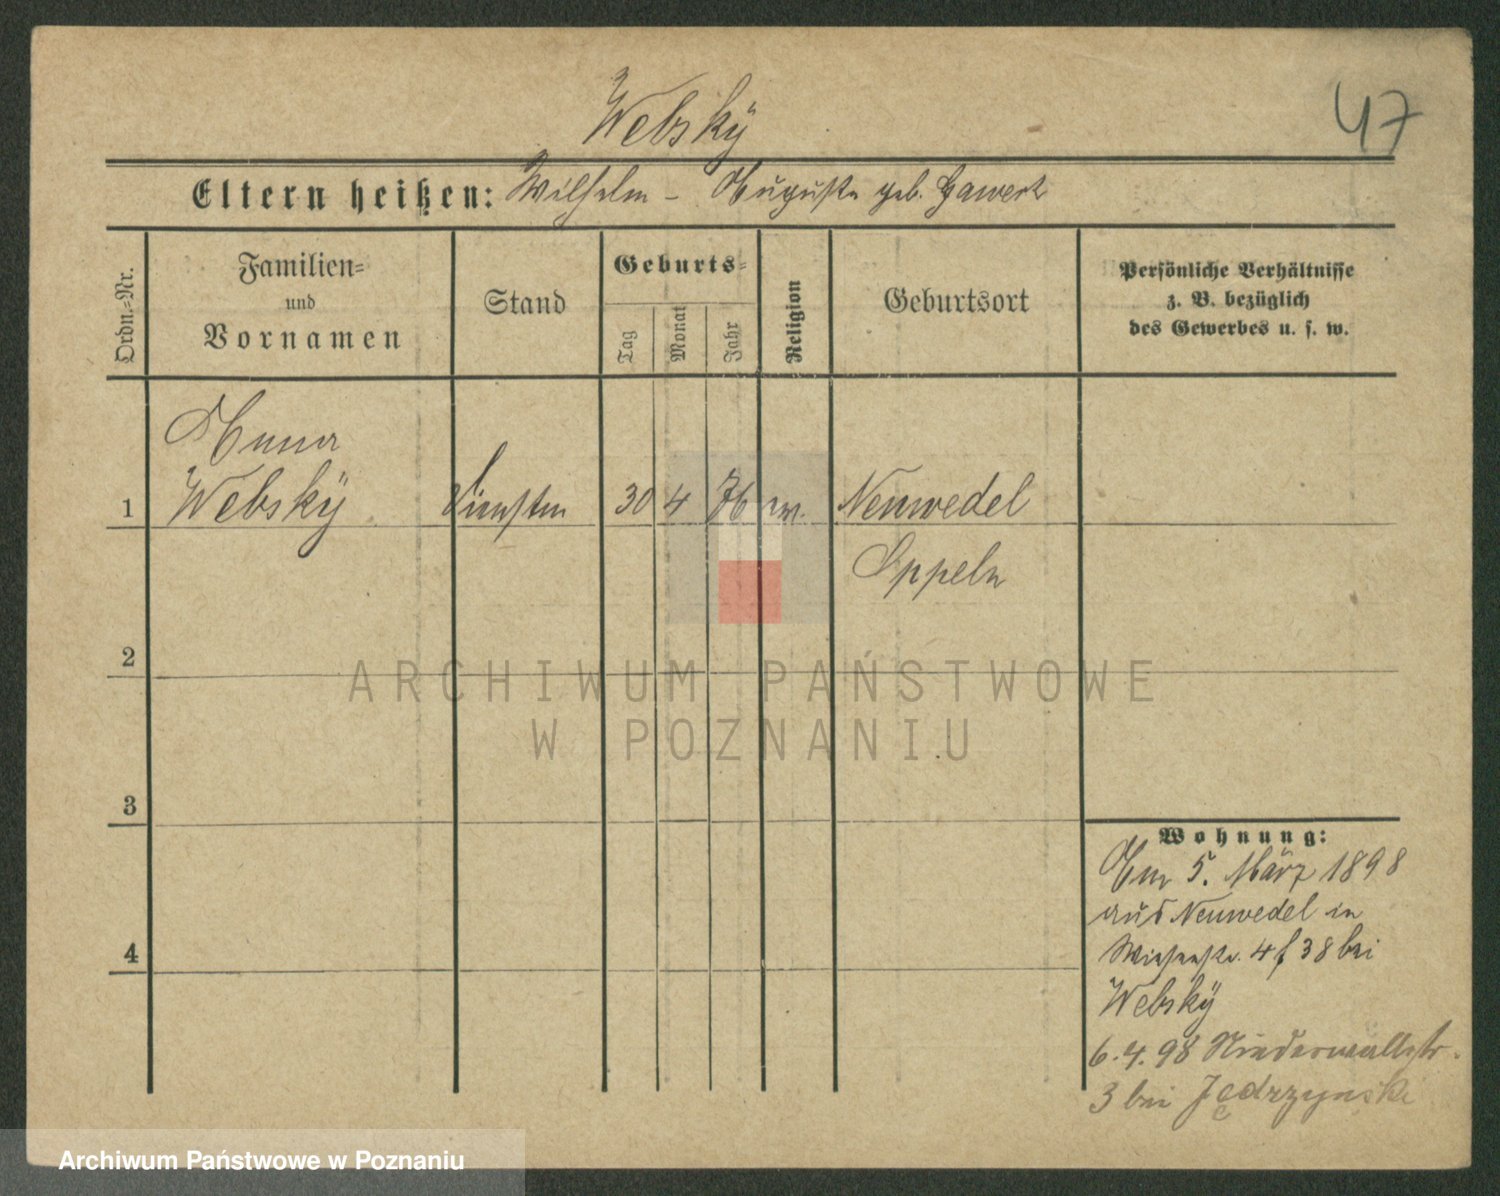 Webskÿ
47
Eltern heißen: Wilhelm – Auguste geb. Gawert
Ordn.=Nr.
Familien=
und
Vornamen
Stand
Geburts=
Tag
Monat
Jahr
Religion
Geburtsort
Persönliche Verhältnisse
z. B. bezüglich
des Gewerbes u. s. w.
Anna
1 Webskÿ 30 4 76 ew. Neuwedel
Oppeln
2
3
4
ARCHIWUM PAŃSTWOWE
W POZNANIU
Wohnung:
Am 5. März 1898
aus Neuwedel in
Wiesenstr. 4 f 38 bei
Webskÿ
6.4.98 Niederwallstr.
3 bei Jędrzynski
Archiwum Państwowe w Poznaniu